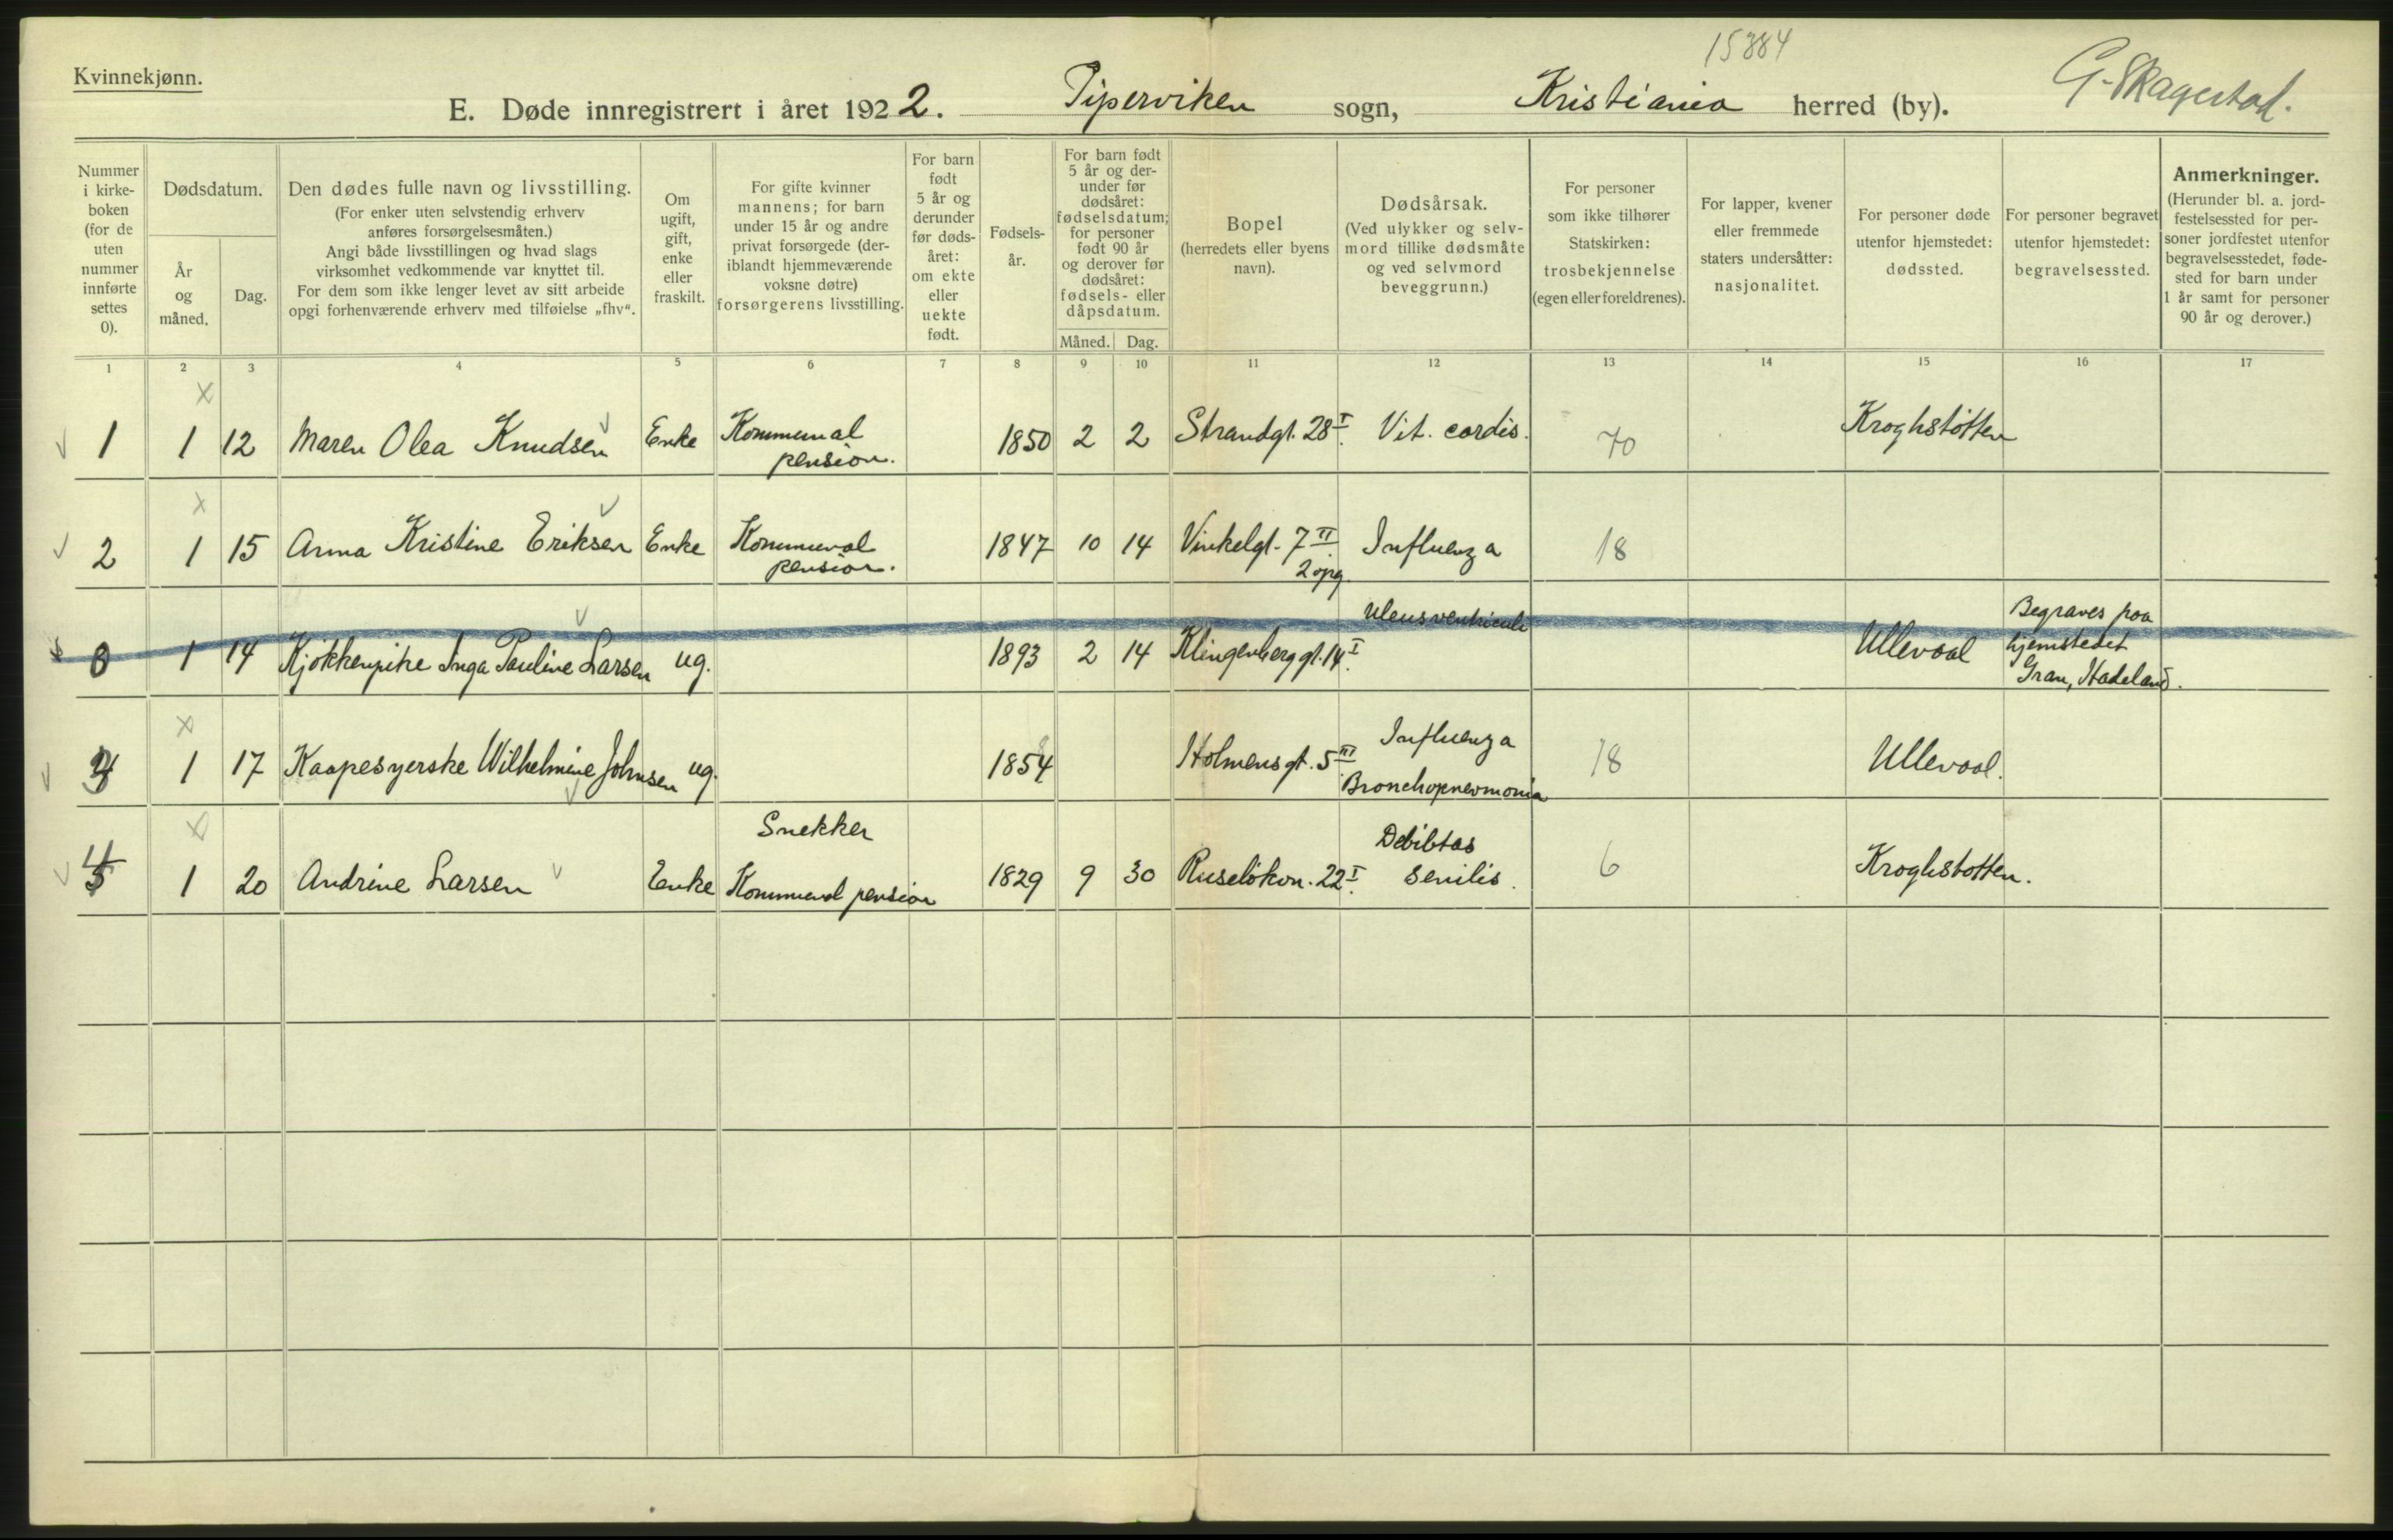 15384
Kvinnekjønn.
G. Skagestad.
E. Døde innregistrert i året 1922. Piperviken sogn, Kristiania herred (by).
Nummer i kirke-boken (for de uten nummer innførte settes 0).
Dødsdatum.
År og måned.
Dag.
Den dødes fulle navn og livsstilling.
(For enker uten selvstendig erhverv anføres forsørgelsesmåten.)
Angi både livsstillingen og hvad slags virksomhet vedkommende var knyttet til.
For dem som ikke lenger levet av sitt arbeide opgi forhenværende erhverv med tilføielse „fhv“.
Om ugift, gift, enke eller fraskilt.
For gifte kvinner mannens; for barn under 15 år og andre privat forsørgede (der-iblandt hjemmeværende voksne døtre) forsørgerens livsstilling.
For barn født 5 år og derunder før døds-året: om ekte eller uekte født.
Fødsels-år.
For barn født 5 år og der-under før dødsåret: fødselsdatum; for personer født 90 år og derover før dødsåret: fødsels- eller dåpsdatum.
Måned. Dag.
Bopel (herredets eller byens navn).
Dødsårsak. (Ved ulykker og selv-mord tillike dødsmåte og ved selvmord beveggrunn.)
For personer som ikke tilhører Statskirken: trosbekjennelse (egen eller foreldrenes).
For lapper, kvener eller fremmede staters undersåtter: nasjonalitet.
For personer døde utenfor hjemstedet: dødssted.
For personer begravet utenfor hjemstedet: begravelsessted.
Anmerkninger.
(Herunder bl. a. jord-festelsessted for per-soner jordfestet utenfor begravelsesstedet, føde-sted for barn under 1 år samt for personer 90 år og derover.)
1 2 3 4 5 6 7 8 9 10 11 12 13 14 15 16 17
1 1 12 Maren Olea Knudsen Enke Kommunal pension. 1850 2 2 Strandgt. 28 I. Vit. cordis. 70 Kroghstøtten
2 1 15 Anna Kristine Eriksen Enke Kommunal pension. 1847 10 14 Vinkelgt. 7 II. 2 opg. Influenza 18
0 1 14 Kjøkkenpike Inga Pauline Larsen ug. 1893 2 14 Klingenberggt. 14 I. Ulcus ventriculi Ullevaal Begraves paa hjemstedet Gran, Hadeland.
3 1 17 Kaapesyerske Wilhelmine Johnsen ug. 1854 Holmensgt. 5 III Influenza Bronchopneumonia 18 Ullevaal.
4 1 20 Andrine Larsen Enke Snekker Kommunal pension 1829 9 30 Ruseløkvn. 22 I. Debilitas senilis. 6 Kroghstøtten.